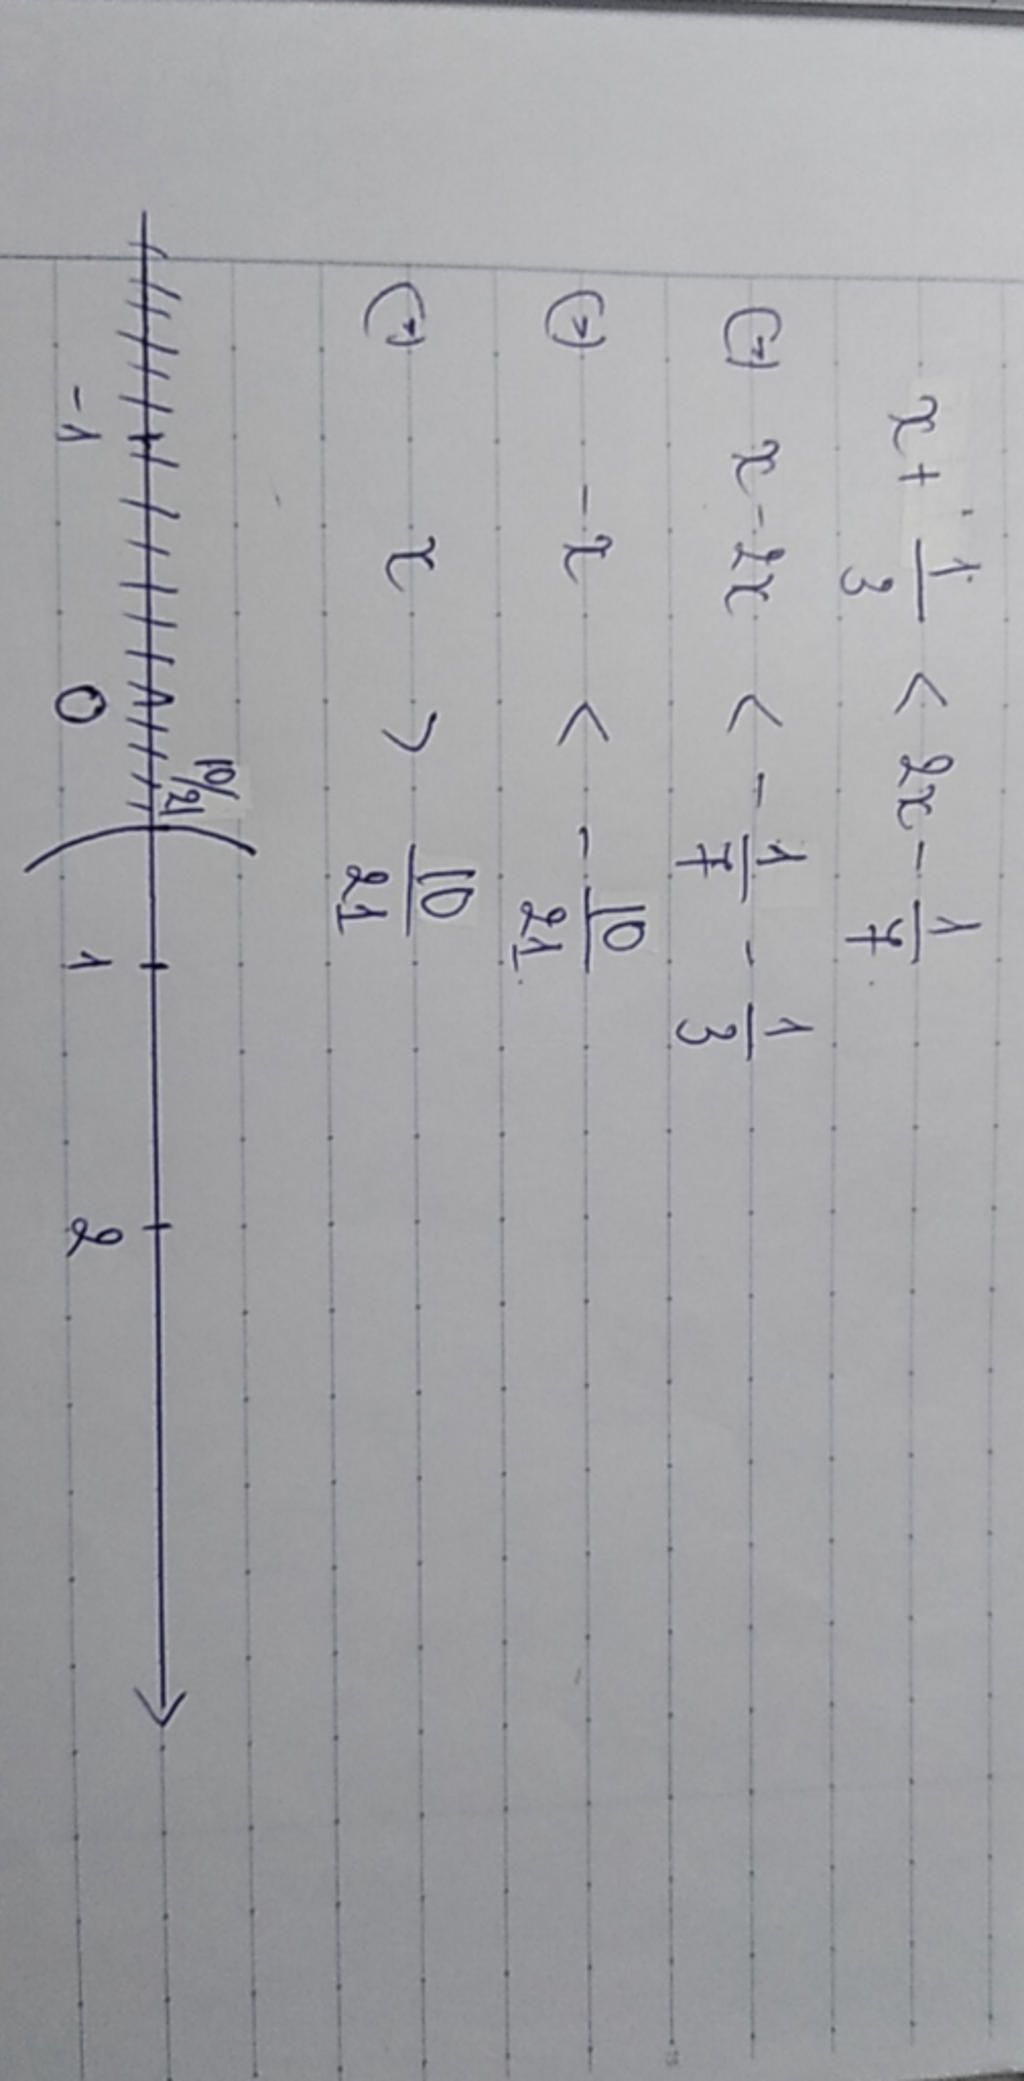 x + 1/3 < 2x - 1/7
(→) x - 2x < - 1/7 - 1/3
(→) -x < - 10/21
(→) x > 10/21
10/21
-1 0 1 2